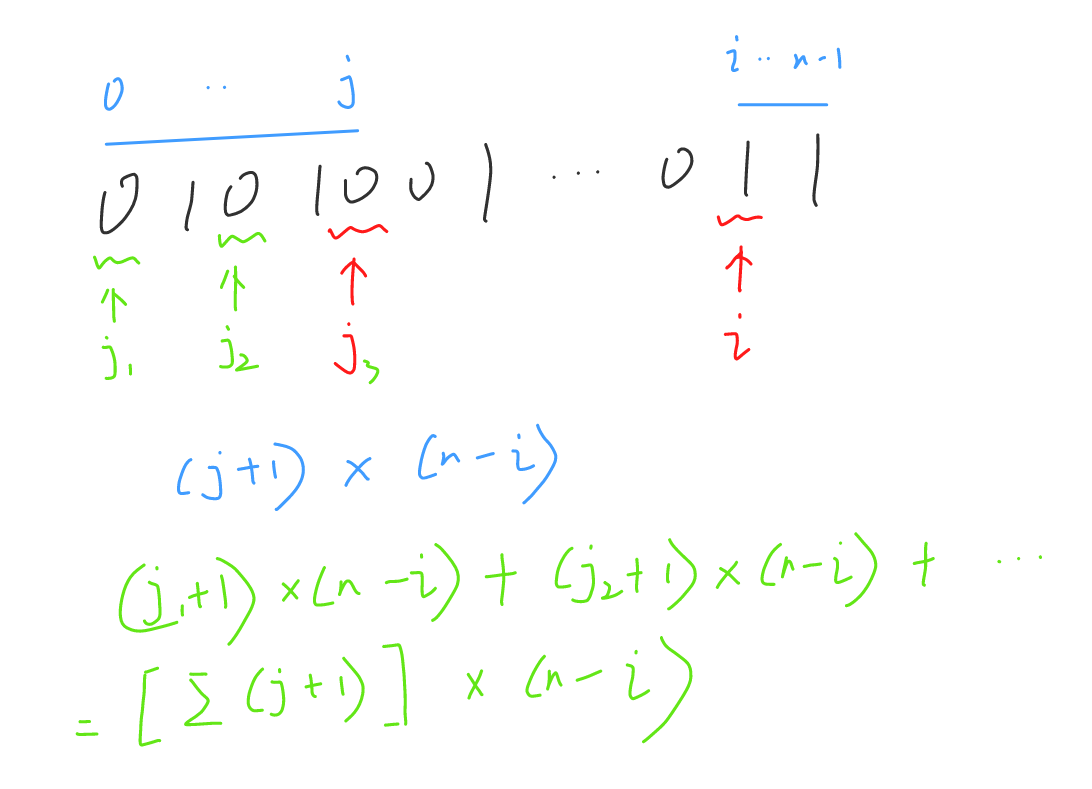 0 ·· j i ·· n-1
0 1 0 1 0 0 1 ... 0 1 1
j₁ j₂ j₃ i
(j+1) × (n-i)
(j₁+1) × (n-i) + (j₂+1) × (n-i) + ...
= [Σ(j+1)] × (n-i)